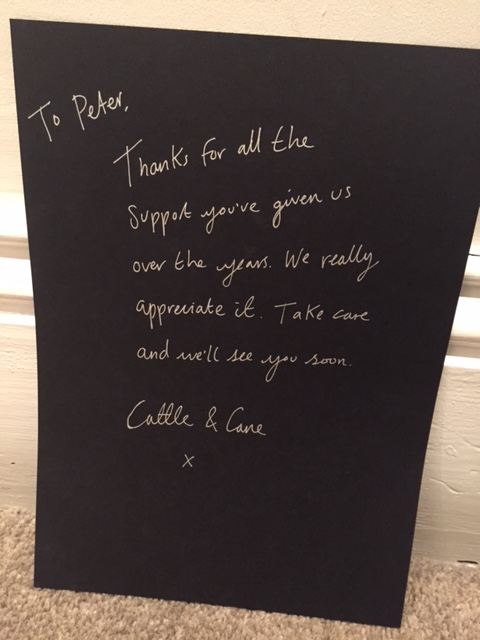 To Peter,
Thanks for all the
support you've given us
over the years. We really
appreciate it. Take care
and we'll see you soon.
Cattle & Cane
x